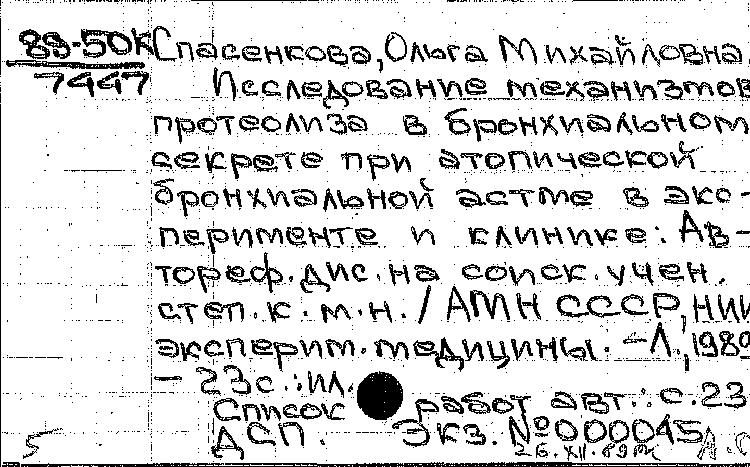 89-50К Спасенкова, Ольга Михайловна.
7447 Исследование механизмов
протеолиза в бронхиальном
секрете при атопической
бронхиальной астме в экс-
перименте и клинике: Ав-
тореф. дис. на соиск. учен.
степ. к. м. н. / АМН СССР, НИИ
эксперим. медицины. - Л., 1989
- 23 с. : ил.
Список работ авт.: с. 23
ДСП. Экз. №000045
5 26.XII.89